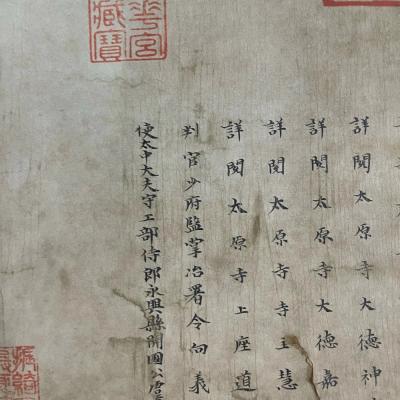 詳閱太原寺大德神
詳閱太原寺大德嘉
詳閱太原寺寺主慧
詳閱太原寺上座道
判官少府監掌冶署令向義
使太中大夫守工部侍郎永興縣開國公虞
華宮
藏寶